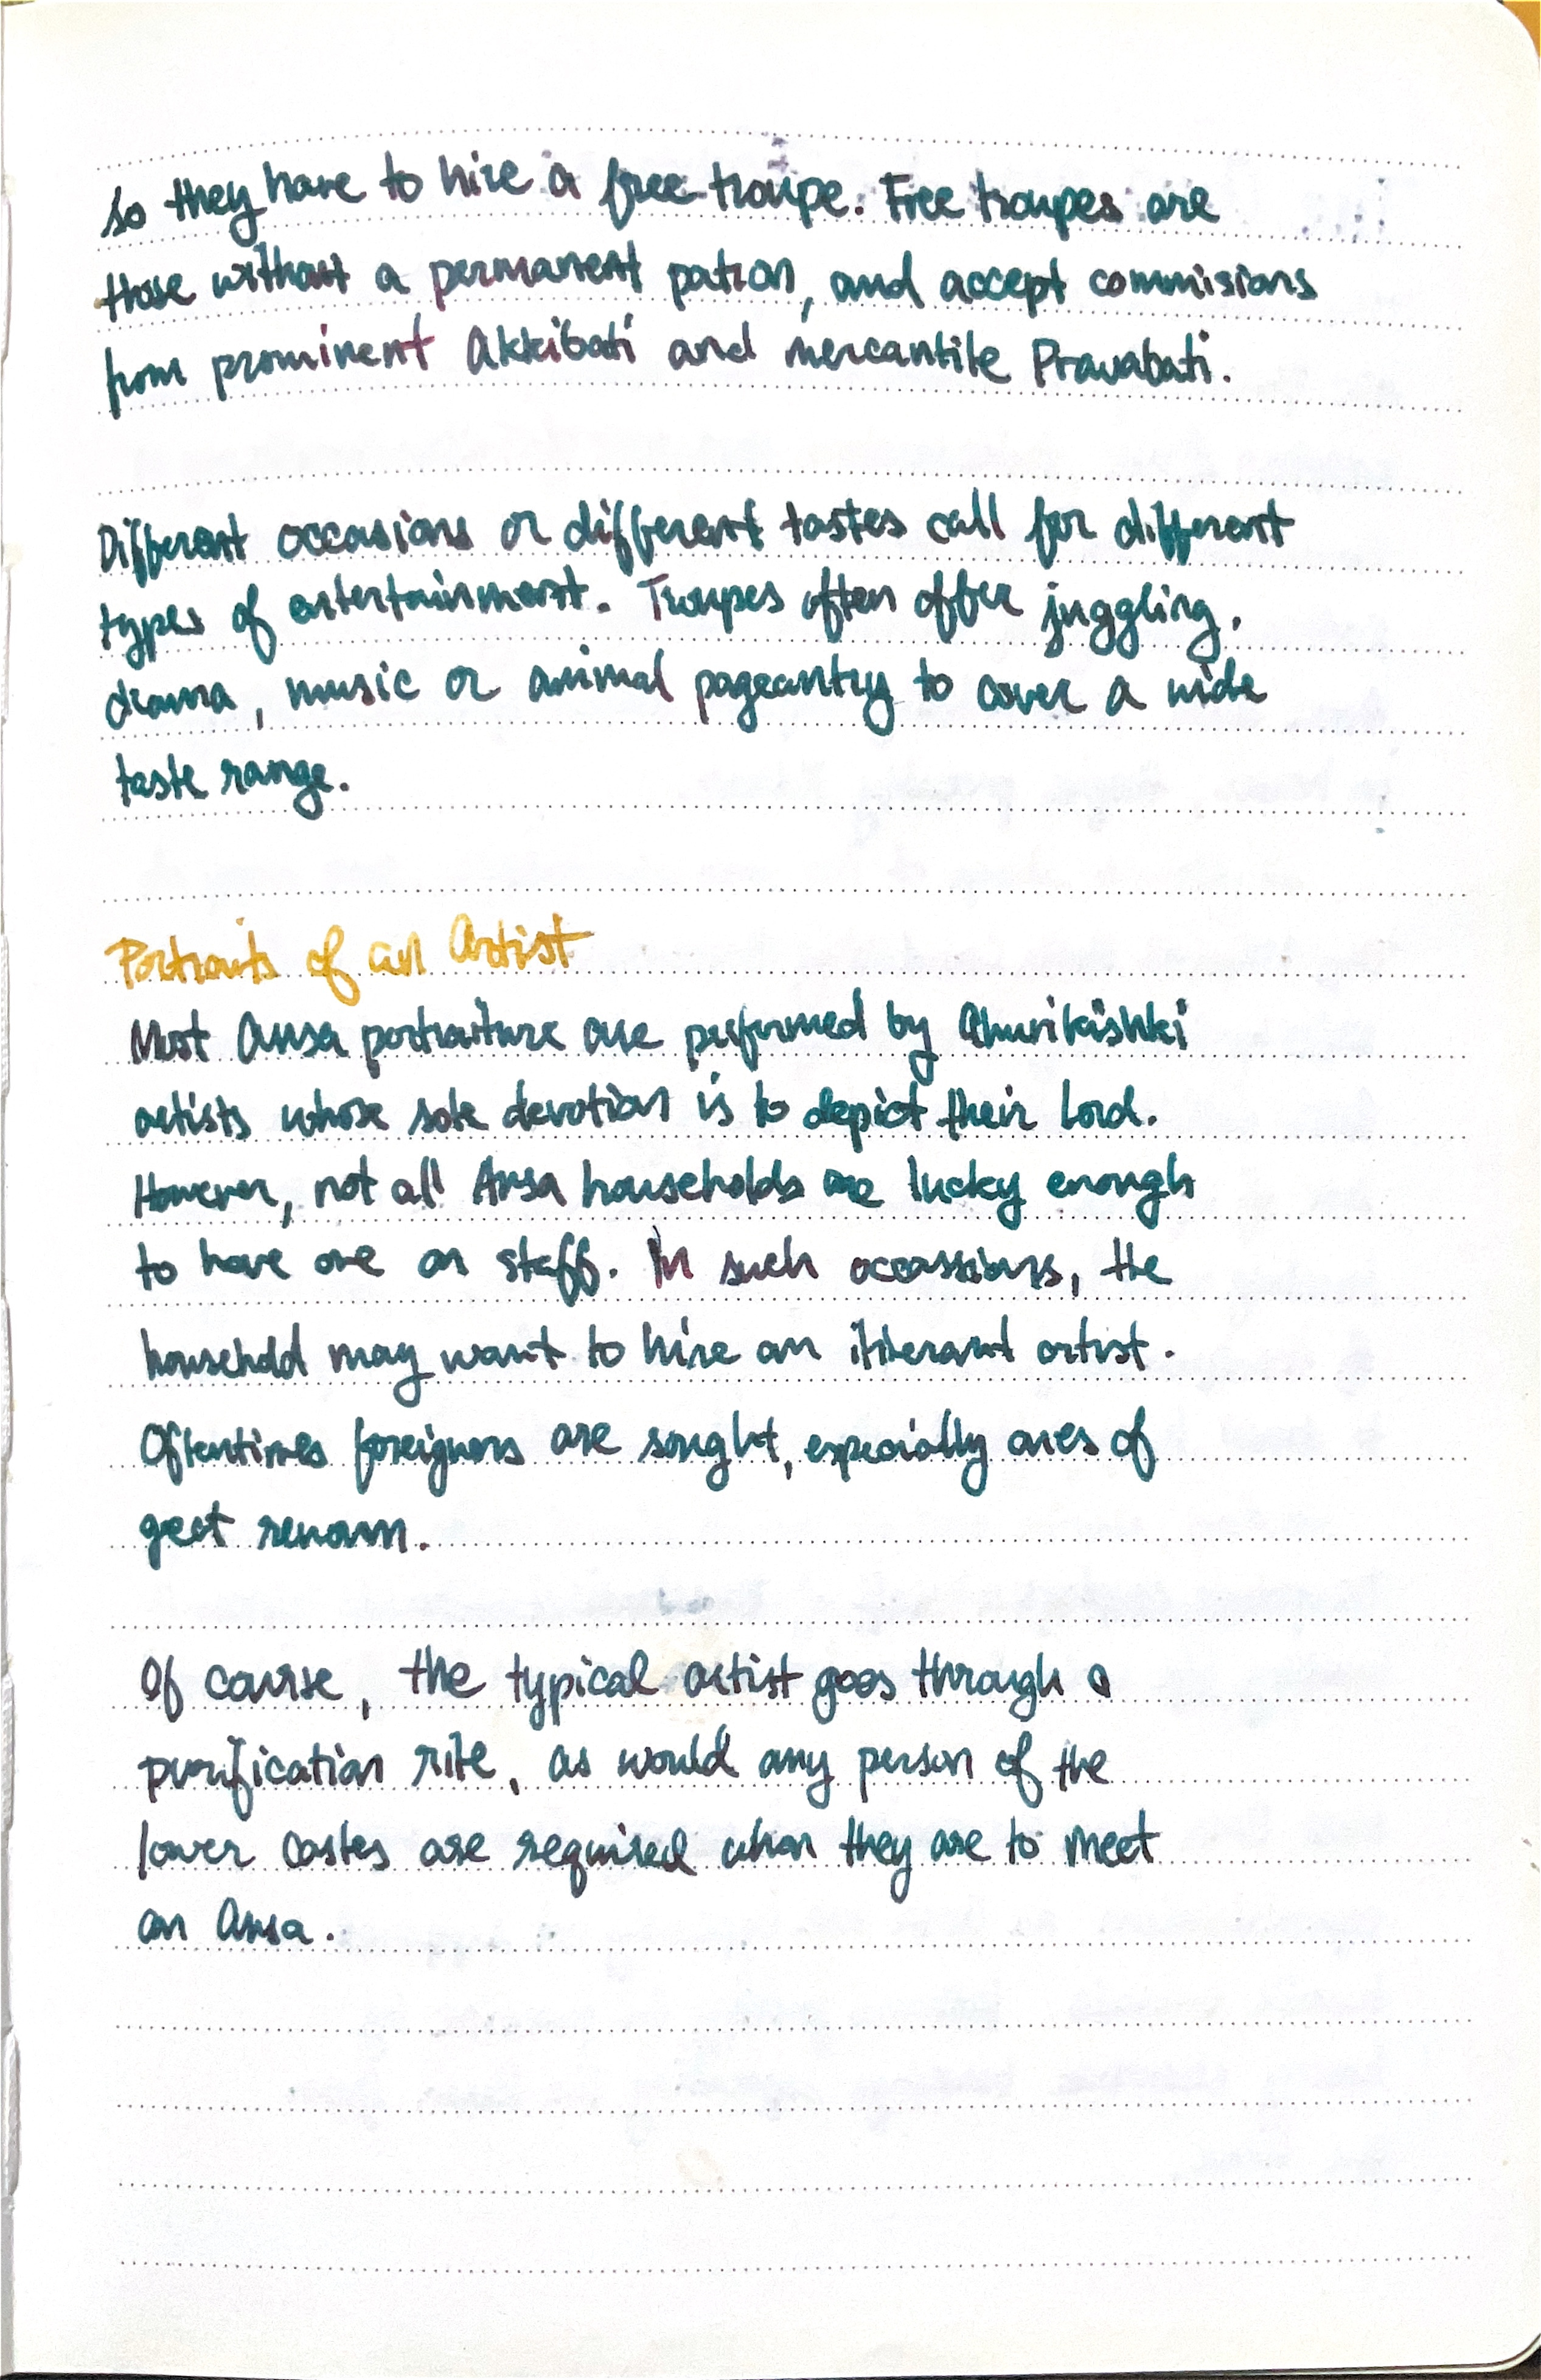 so they have to hire a free troupe. Free troupes are
those without a permanent patron, and accept commisions
from prominent Akkibati and mercantile Pravabati.
Different occasions or different tastes call for different
types of entertainment. Troupes often offer juggling,
drama, music or animal pageantry to cover a wide
taste range.
Portraits of an Artist
Most Ansa portraiture are performed by
artists whose sole devotion is to depict their Lord.
However, not all Ansa households are lucky enough
to have one on staff. In such occassions, the
household may want to hire an itinerant artist.
Oftentimes foreigners are sought, especially ones of
great renown.
Of course, the typical artist goes through a
purification rite, as would any person of the
lower castes are required when they are to meet
an Ansa.